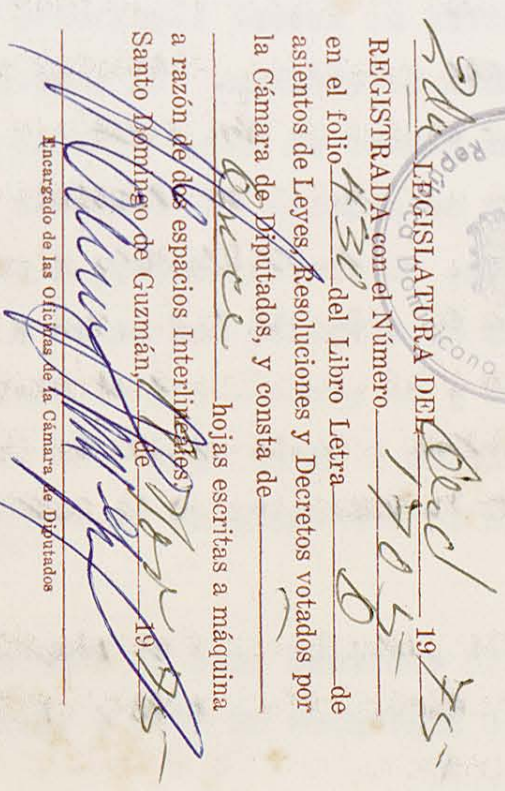 2da LEGISLATURA DEL Ord 1975-
REGISTRADA con el Número 1705
en el folio 430 del Libro Letra de
asientos de Leyes, Resoluciones y Decretos votados por
la Cámara de Diputados, y consta de
Once hojas escritas a máquina
a razón de dos espacios Interlineales
Santo Domingo de Guzmán, de Nov 1975-
Encargado de las Oficinas de la Cámara de Diputados
República Dominicana